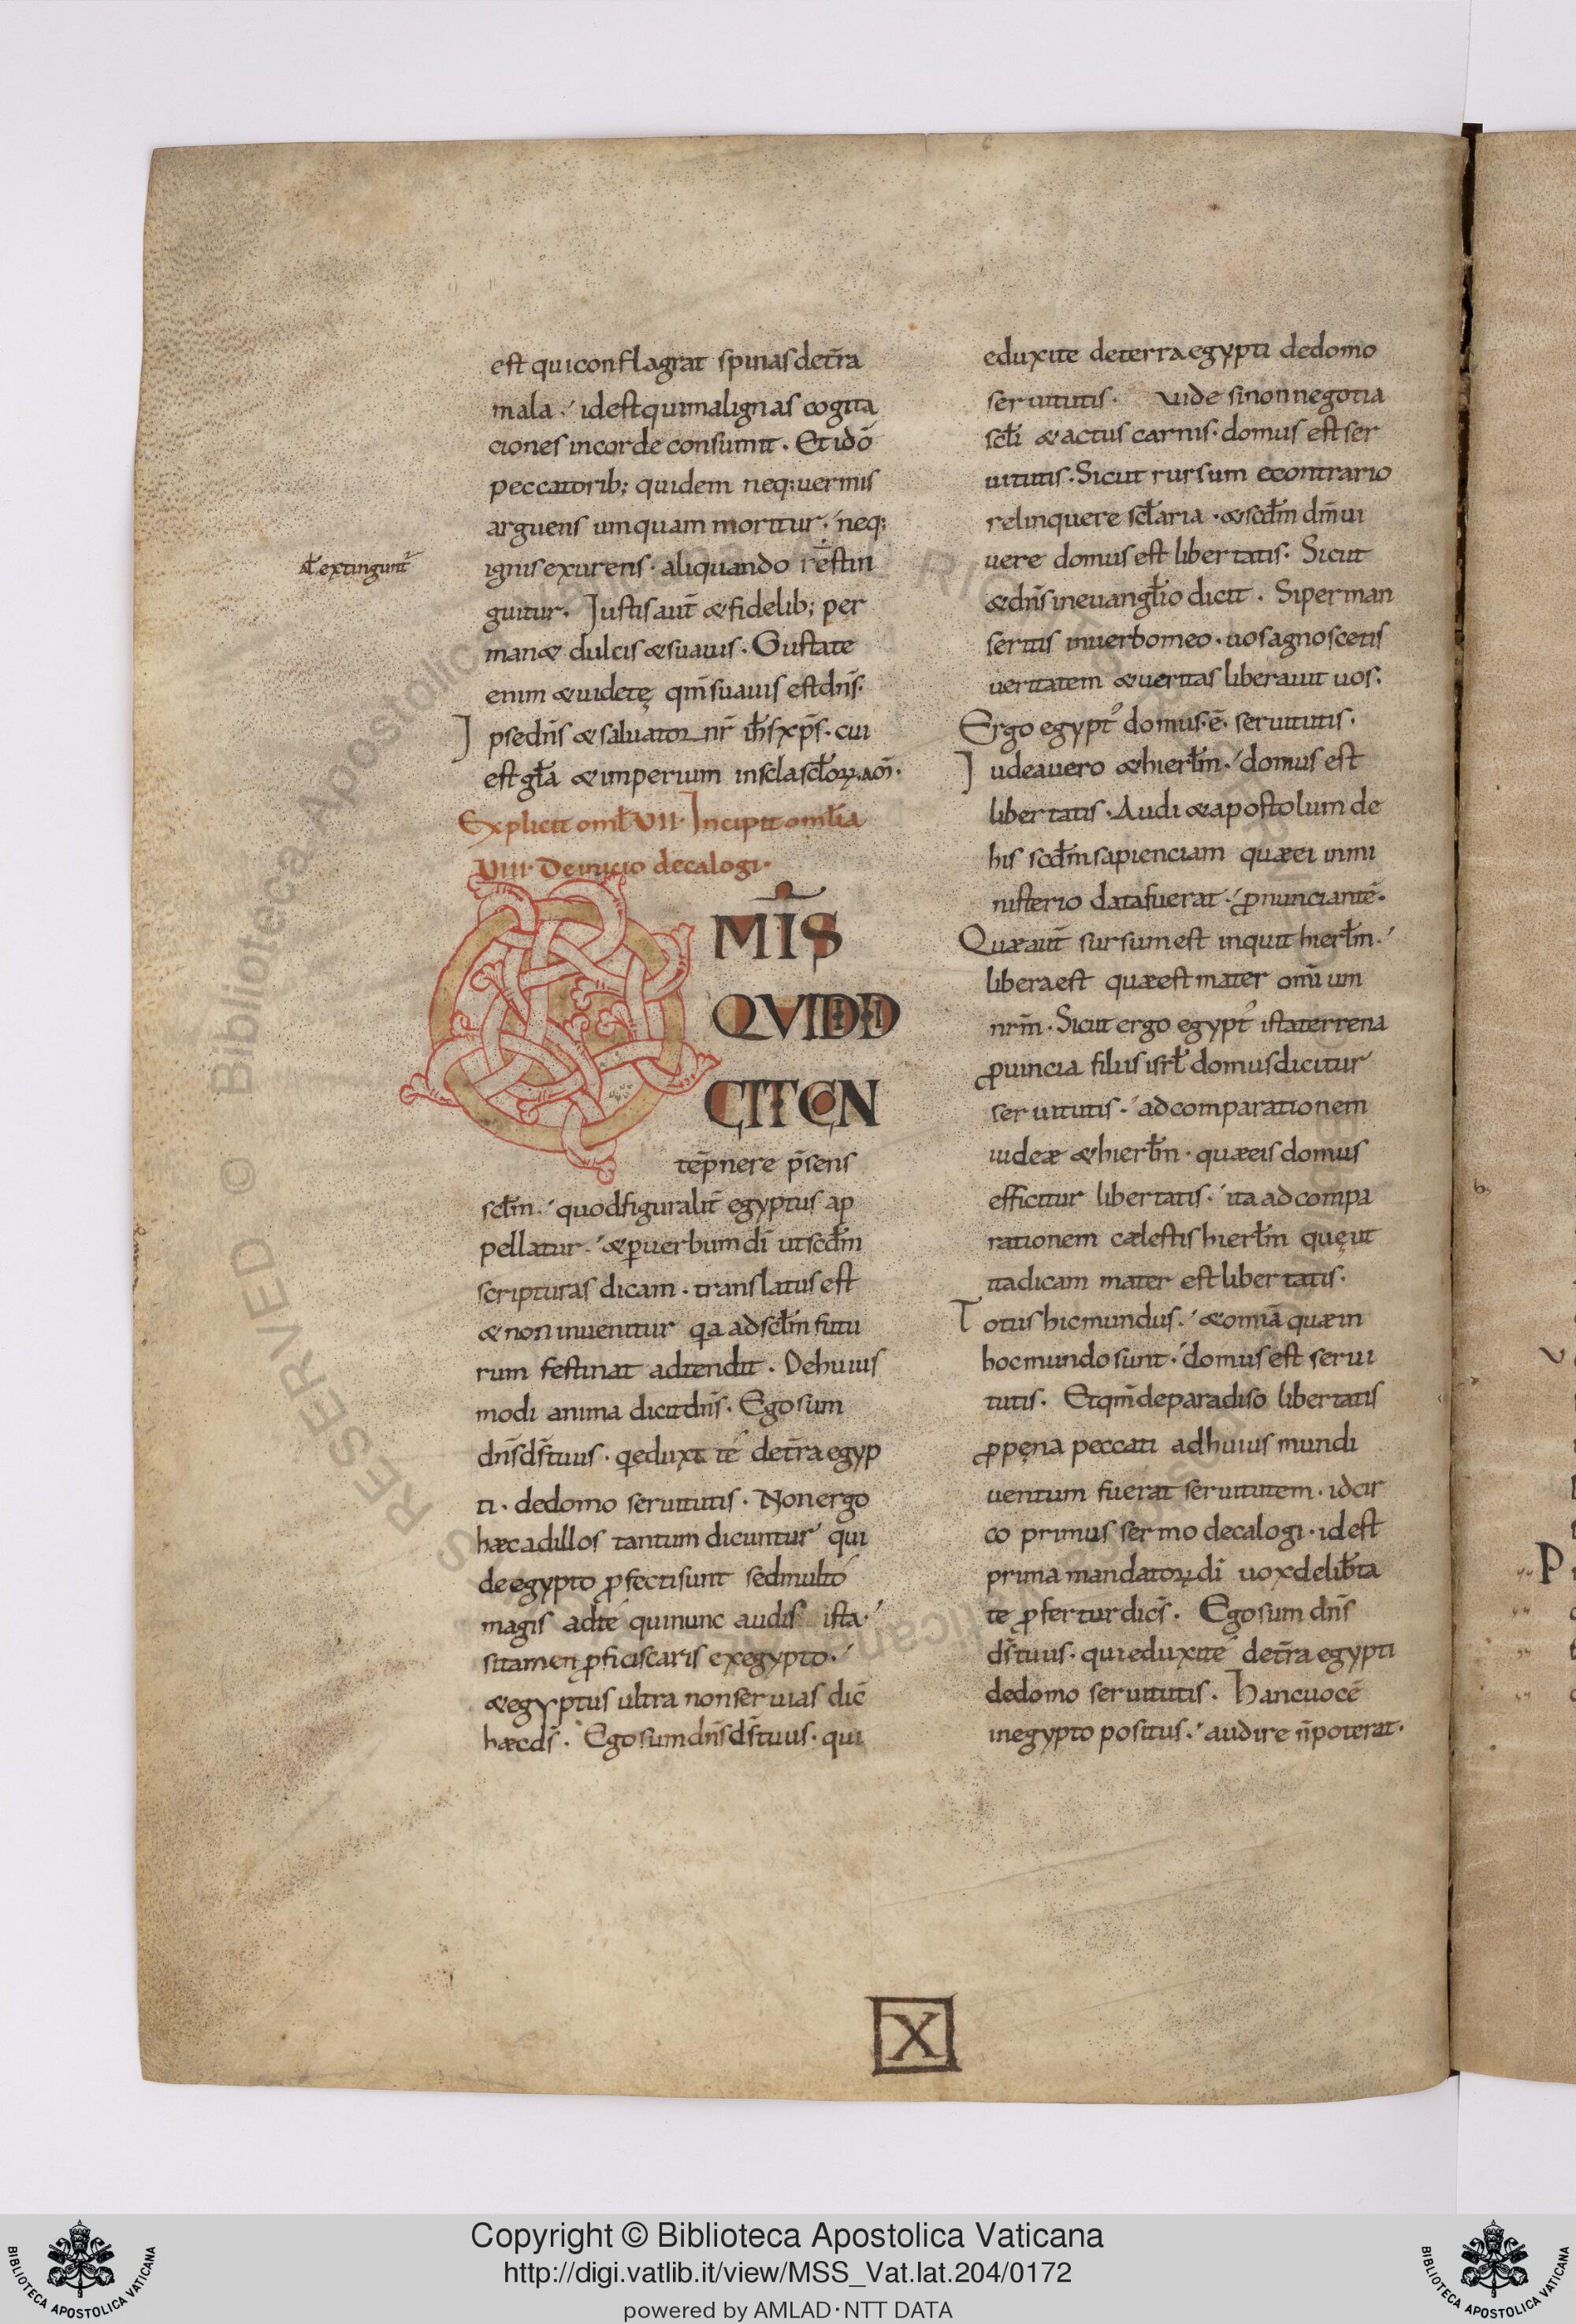 est qui conflagrat spinas det̄ra
mala · id est qui malignas cogita
ciones in corde consumit . Et idō
peccatorib; quidem neq; uermis
arguens umquam moritur · neq;
ignis exurens · aliquando rēstin
guitur . Iustis aut̄ & fidelib; per
man& dulcis & suauis . Gustate
enim & uidetę qm̄ suauis est dn̄s .
Ipse dn̄s & saluator nr̄ ih̄s xp̄s · cui
est gła & imperium in scla scłoꝝ . am̄ .
Explicit omł VII · Incipit omłia
VIII · De inicio decalogi ·
OMĪS
QVI DIDI
CIT CON
tēpnere p̄sens
scłm · quod figuralit̄ egyptus ap
pellatur · & p uerbum dī ut scd̄m
scripturas dicam · translatus est
& non inuenitur qa ad scłm futu
rum festinat adtendit . De huius
modi anima dicit dn̄s . Ego sum
dn̄s ds̄ tuus · q eduxit te det̄ra egyp
ti · de domo seruitutis . Non ergo
hæc ad illos tantum dicuntur qui
de egypto ꝓfecti sunt sed multo
magis ad te qui nunc audis ista ·
si tamen ꝓficiscaris ex egypto ·
& egyptus ultra non seruias dic̄
hæc ds̄ . Ego sum dn̄s ds̄ tuus · qui
ał extingunt̄
eduxi te de terra egypti de domo
seruitutis . Vide si non negotia
scłi & actus carnis · domus est ser
uitutis . Sicut rursum econtrario
relinquere scłaria · & scd̄m dm̄ ui
uere domus est libertatis . Sicut
& dn̄s in euangłio dicit . Si perman
seritis in uerbo meo · uos agnoscetis
ueritatem & ueritas liberauit uos .
Ergo egypt᾿ domus · ē · seruitutis .
Iudea uero & hierłm · domus est
libertatis . Audi & apostolum de
his scd̄m sapienciam quæ ei in mi
nisterio data fuerat · ꝓnunciantē .
Quæ aut̄ sursum est inquit hierłm ·
libera est quæ est mater omī um
nrm̄ . Sicut ergo egypt᾿ ista terrena
ꝓuincia filiis isrł domus dicitur
seruitutis · ad comparationem
iudeæ & hierłm · quæ eis domus
efficitur libertatis · ita ad compa
rationem cælestis hierłm quę ut
ita dicam mater est libertatis .
Totus hic mundus · & omīa quæ in
hoc mundo sunt · domus est serui
tutis . Et qm̄ de paradiso libertatis
ꝓ pęna peccati ad huius mundi
uentum fuerat seruitutem · idcir
co primus sermo decalogi · id est
prima mandatoꝝ dī uox de lib̄ta
te ꝓfertur dics̄ . Ego sum dn̄s
ds̄ tuus · qui eduxi te det̄ra egypti
de domo seruitutis . Hanc uocē
in egypto positus · audire n̄ poterat .
X
Copyright © Biblioteca Apostolica Vaticana
http://digi.vatlib.it/view/MSS_Vat.lat.204/0172
powered by AMLAD · NTT DATA
BIBLIOTECA APOSTOLICA VATICANA
BIBLIOTECA APOSTOLICA VATICANA